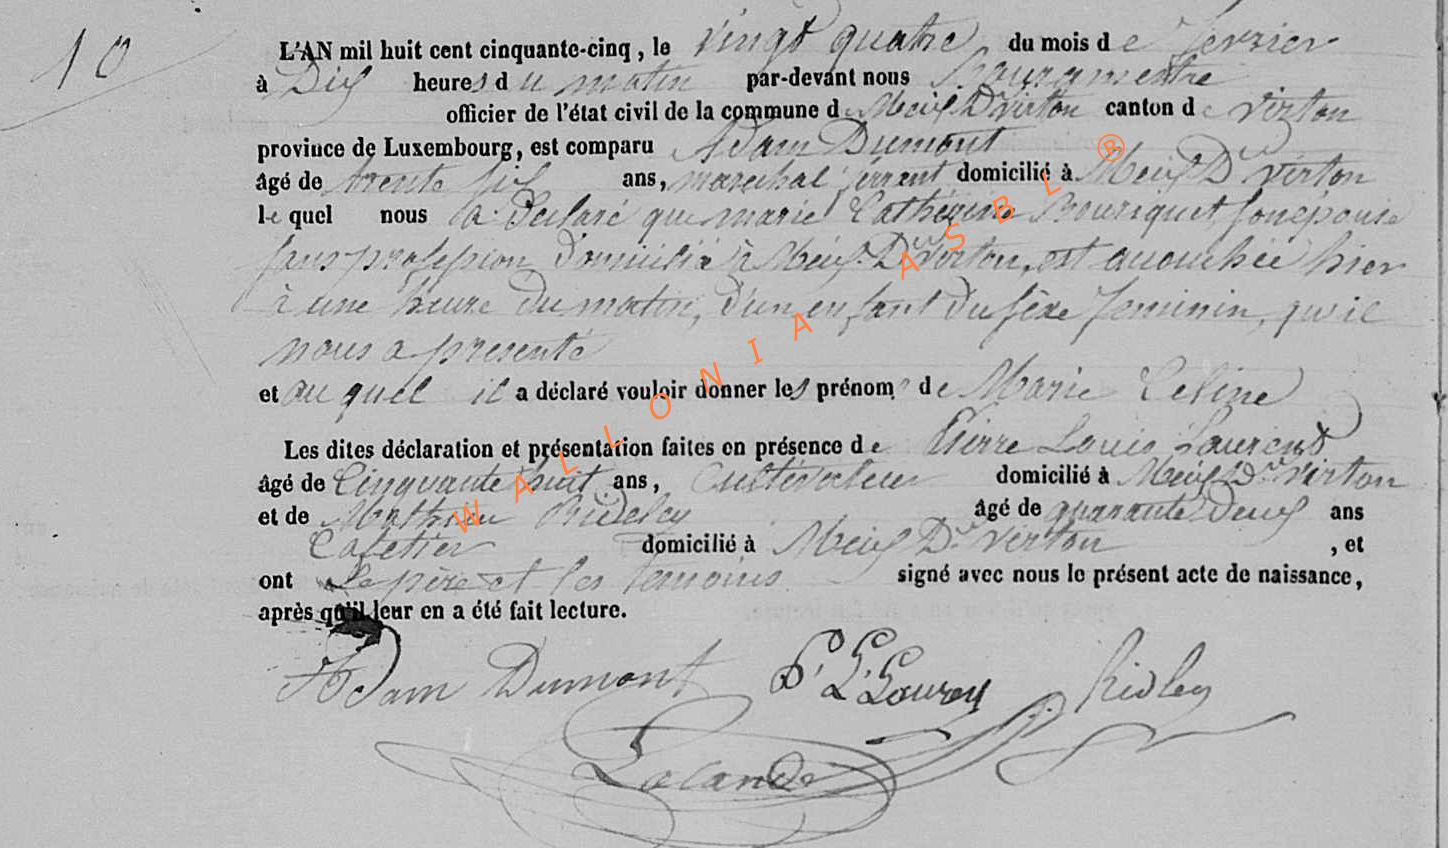 10
L'AN mil huit cent cinquante-cinq, le vingt quatre du mois de fevrier
à Dix heures du matin par-devant nous Bourgmestre
officier de l'état civil de la commune de Meix Dt virton canton de virton
province de Luxembourg, est comparu Adam Dumont
âgé de trente six ans, marechal ferrant domicilié à Meix Dt virton
lequel nous a declaré que marie Catherine Bouriquet son épouse
sans profession domicilié à Meix Dt virton, est accouchée hier
à une heure du matin, d'un enfant du sexe feminin, qu'il
nous a presenté
et au quel il a déclaré vouloir donner les prénoms de Marie Celine
Les dites déclaration et présentation faites en présence de Pierre Louis Laurent
âgé de Cinquante huit ans, Cultivateur domicilié à Meix Dt virton
et de Mathieu Ridley âgé de quarante deux ans
Cafetier domicilié à Meix Dt virton , et
ont Le père et les temoins signé avec nous le présent acte de naissance,
après qu'il leur en a été fait lecture.
Adam Dumont P. L. Laurent Ridley
Lalande
WALLONIA ASBL ®